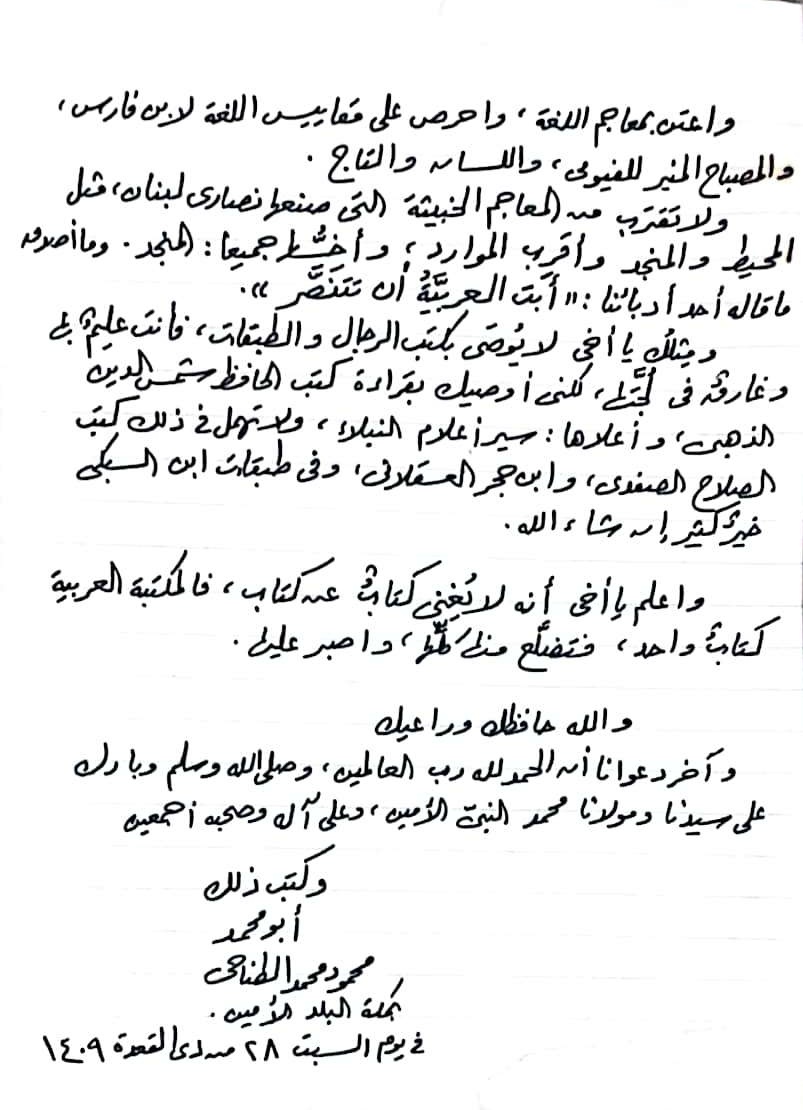 واعتن بمعاجم اللغة، واحرص على مقاييس اللغة لابن فارس،
والمصباح المنير للفيومى، واللسان والتاج.
ولا تقترب من المعاجم الخبيثة التى صنعها نصارى لبنان، مثل
المحيط والمنجد وأقرب الموارد، وأخسُّها جميعا: المنجد. وما أصدق
ما قاله أحد أدبائنا: «أبت العربيَّةُ أن تتنصَّر».
ومثلك يا أخى لا يُوصَى بكتب الرجال والطبقات، فأنت عليمٌ بها
وغارقٌ فى لُجَّتها، لكنى أوصيك بقراءة كتب الحافظ شمس الدين
الذهبى، وأعلاها: سير أعلام النبلاء، ولا تهمل فى ذلك كتب
الصلاح الصفدى، وابن حجر العسقلانى، وفى طبقات ابن السبكى
خيرٌ كثير إن شاء الله.
واعلم يا أخى أنه لا يُغنِى كتابٌ عن كتاب، فالمكتبة العربية
كتابٌ واحد، فتضلَّع منها كلِّها، واصبر عليها.
والله حافظك وراعيك
وآخر دعوانا أن الحمد لله رب العالمين، وصلى الله وسلم وبارك
على سيدنا ومولانا محمد النبىّ الأمين، وعلى آله وصحبه أجمعين
وكتب ذلك
أبو محمد
محمود محمد الطناحى
بمكة البلد الأمين.
فى يوم السبت ٢٨ من ذى القعدة ١٤٠٩